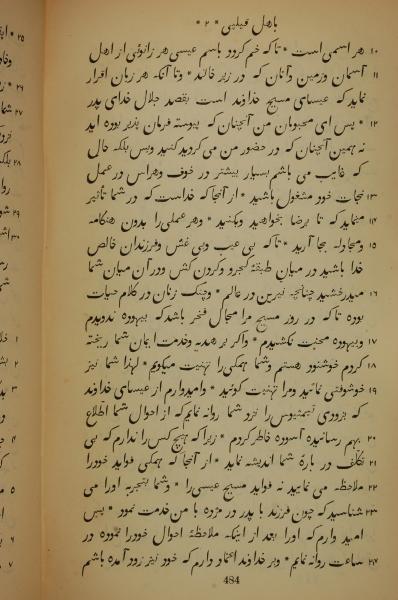 باهل فیلیپی * ۲ *
۱۰ هر اسمی است * تا که خم گردد باسم عیسی هر زانوئی از اهل
۱۱ آسمان وزمین وآنان که در زیر خاکند * وتا آنکه هر زبان اقرار
نماید که عیسای مسیح خداوند است بقصد جلال خدای پدر
۱۲ * پس ای محبوبان من آنچنان که پیوسته فرمان پذیر بوده اید
نه همین آنچنان که در حضور من می کردید کنید وبس بلکه حال
که غایب می باشم بسیار بیشتر در خوف وهراس در عمل
۱۳ نجات خود مشغول باشید * از آنجا که خداست که در شما تأثیر
۱۴ مینماید که تا برضا بخواهید وبکنید * وهر عملی را بدون همهمه
۱۵ ومجادله بجا آرید * تا که بی عیب وبی غش وفرزندان خالص
خدا باشید در میان طبقهٔ کجرو وگردن کش ودر آن میان شما
۱۶ میدرخشید چنانچه نیرین در عالم * وچنگ زنان در کلام حیات
بوده تا که در روز مسیح مرا مجال فخر باشد که بیهوده ندویدم
۱۷ وبیهوده محنت نکشیدم * واگر بر هدیه وخدمت ایمان شما ریخته
۱۸ کردم خوشنود هستم وشما همکی را تهنیت میگویم * لهذا شما نیز
۱۹ خوشوقتی نمائید ومرا تهنیت گوئید * وامیدوارم از عیسای خداوند
که بزودی تیمثیوس را نزد شما روانه نمایم که از احوال شما اطّلاع
۲۰ بهم رسانیده آسوده خاطر گردم * زیرا که هیچ کس را ندارم که بی
۲۱ تکلّف در بارهٔ شما اندیشه نماید * از آنجا که همکی فواید خود را
۲۲ ملاحظه می نمایند نه فواید مسیح عیسی را * وشما بتجربه اورا می
۲۳ شناسید که چون فرزند با پدر در مژده با من خدمت نمود * پس
امید وارم که اورا بعد از اینکه ملاحظهٔ احوال خود را نموده در
۲۴ ساعت روانه نمایم * وبر خداوند اعتماد دارم که خود نیز زود آمده باشم
484